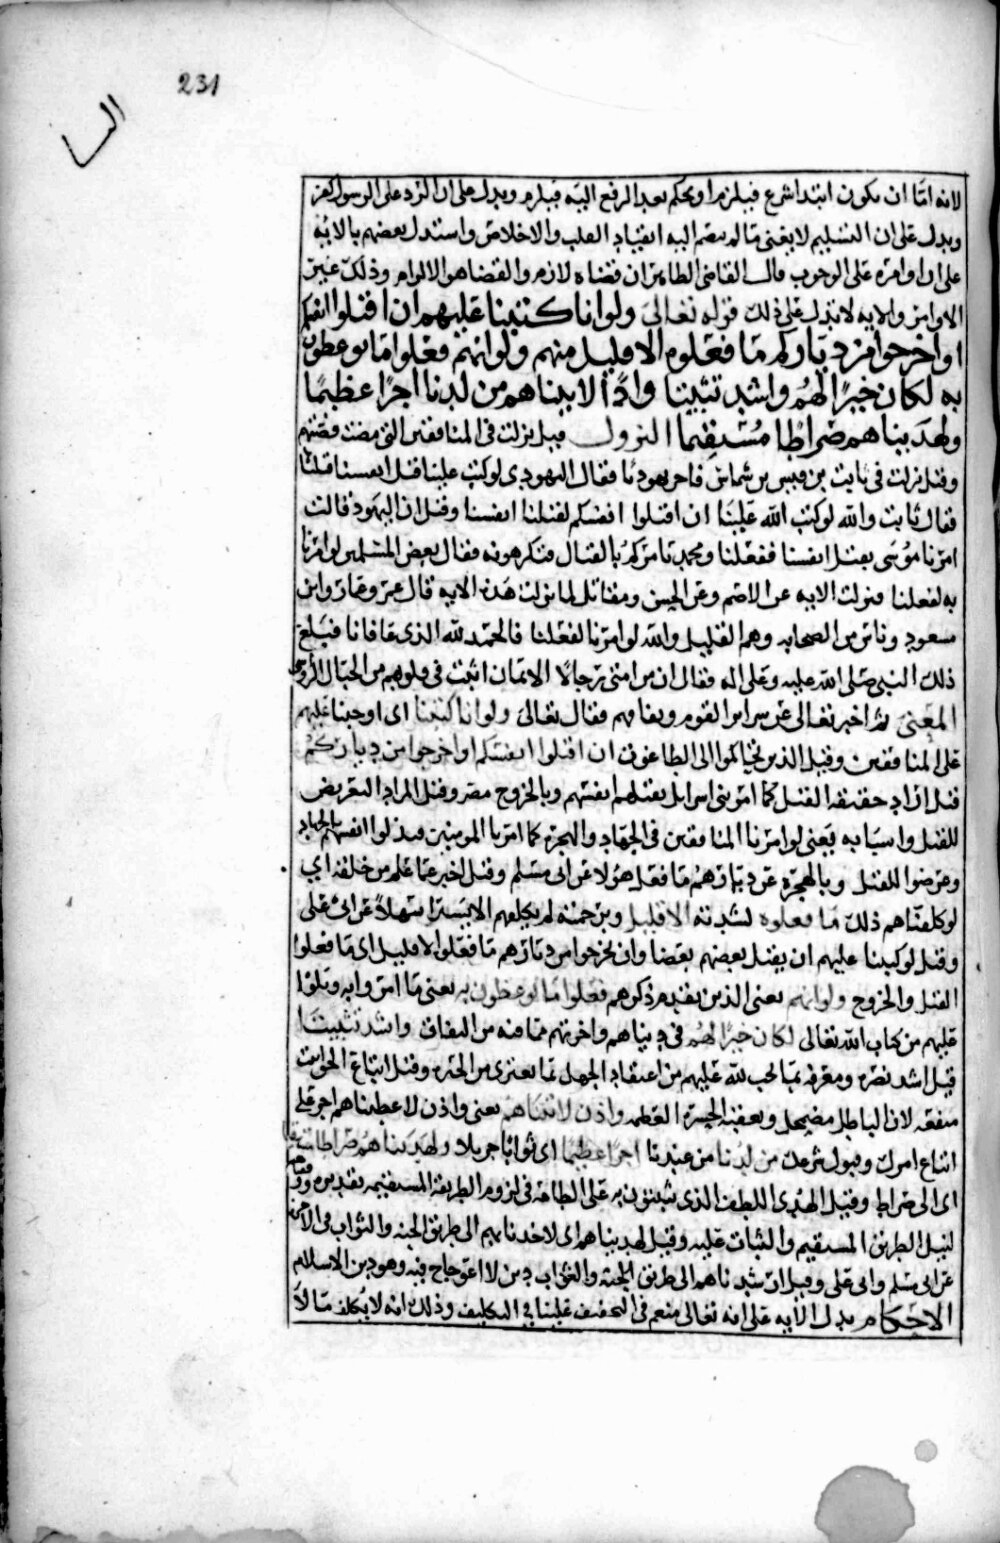 231
النسا
لانه امّا ان يكون ابتدا شرع فيلزم او يحكم بعد الرفع اليه فيلزم ويدل على ان الرد على الرسول كفر
ويدل على ان التسليم لا يغني ما لم ينضم اليه انقياد القلب والاخلاص واستدل بعضهم بالايه
على ان اوامره على الوجوب قال القاضي الظاهر ان قضاه لازم والقضا هو الالزام وذلك غير
الاوامر والايه لا تدل على ذلك قوله تعالى ولو انا كتبنا عليهم ان اقتلوا انفسكم
او اخرجوا من دياركم ما فعلوه الا قليل منهم ولو انهم فعلوا ما يوعظون
به لكان خيرًا لهم واشد تثبيتا واذًا لاتيناهم من لدنا اجرًا عظيمًا
ولهديناهم صراطًا مستقيما النزول قيل نزلت في المنافقين التي مضت قصتهم
وقيل نزلت في ثابت بن قيس بن شماس فاخر يهوديا فقال اليهودي لو كتب علينا قتل انفسنا قلنا
فقال ثابت والله لو كتب الله علينا ان اقتلوا انفسكم لقتلنا انفسنا وقيل ان اليهود قالت
امرنا موسى بقتل انفسنا ففعلنا ومحمد يامركم بالقتال فتكرهونه فقال بعض المسلمين لو امرنا
به لفعلنا فنزلت الايه عن الاصم وعن الحسن ومقاتل لما نزلت هذه الايه قال عمر وعمار وابن
مسعود وناس من الصحابه وهم القليل والله لو امرنا لفعلنا فالحمد لله الذي عافانا فبلغ
ذلك النبي صلى الله عليه وعلى اله فقال ان من امتي رجالًا الايمان اثبت في قلوبهم من الجبال الرواسي
المعنى ثم اخبر تعالى عن سراير القوم ونفاقهم فقال تعالى ولو انا كتبنا اي اوجبنا عليهم
على المنافقين وقيل الذين تحاكموا الى الطاغوت ان اقتلوا انفسكم او اخرجوا من دياركم
قيل اراد حقيقه القتل كما امر بني اسرايل بقتلهم انفسهم وبالخروج مصر وقيل المراد التعريض
للقتل واسبابه يعني لو امرنا المنافقين في الجهاد والهجرة كما امرنا المومنين فبذلوا انفسهم بالجهاد
وعرضوا للقتل وبالهجرة عن ديارهم ما فعل هؤلا عن ابي مسلم وقيل اخبر عما علم من خلقه اي
لو كلفناهم ذلك ما فعلوه لشدته الا قليل ومن رحمته لم يكلفهم الا يسيرا سهلا عن ابي علي
وقيل لو كتبنا عليهم ان يقتل بعضهم بعضا وان يخرجوا من ديارهم ما فعلوا الا قليل اي ما فعلوا
القتل والخروج ولو انهم يعني الذين تقدم ذكرهم فعلوا ما يوعظون به يعني ما امروا به وتلوا
عليهم من كتاب الله تعالى لكان خيرًا لهم في دنياهم واخرتهم مما هم من النفاق واشد تثبيتا
قيل اشد نصرة ومعرفة بما لحب لله عليهم من اعتقاد الجهل بما يعتري من الحيرة وقيل اتباع الحق اثبت
منفعه لان الباطل مضمحل ويعقبه الحسرة العظيمة واذن لاتيناهم يعني واذن لاعطيناهم اجر على
اتباع امرك وقبول شرعك من لدنا من عندنا اجرًا عظيمًا اي ثوابًا جزيلا ولهديناهم صراطا مستقيما
اي الى صراط وقيل الهدى اللطف الذي يثبتون به على الطاعة في لزوم الطريقة المستقيمة تقديره ووفقناهم
لنيل الطريق المستقيم والثبات عليه وقيل لهديناهم اي لاخذنا بهم الى طريق الجنة والثواب في الاخرة
عن ابي مسلم وابي علي وقيل ارشدناهم الى طريق الجنة والثواب دين لا اعوجاج فيه وهو دين الاسلام
الاحكام يدل الايه على انه تعالى منعم في التخفيف علينا في التكليف وذلك انه لا يكلف ما لا